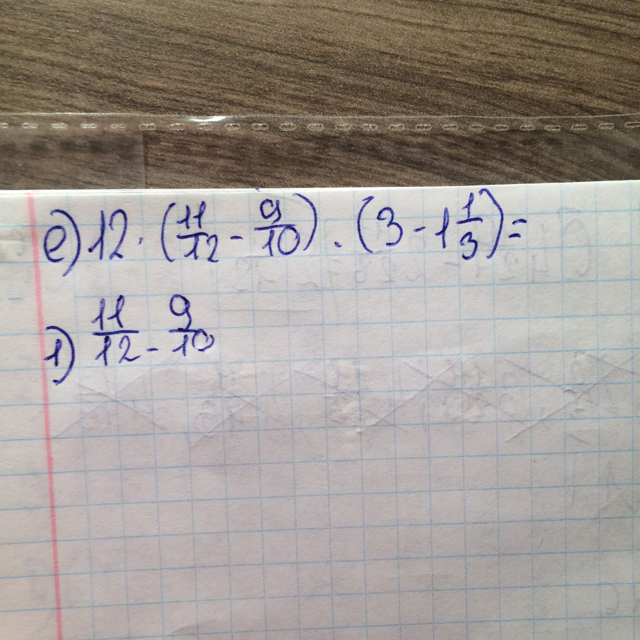 е) 12 · (11/12 - 9/10) · (3 - 1 1/3) =
1) 11/12 - 9/10